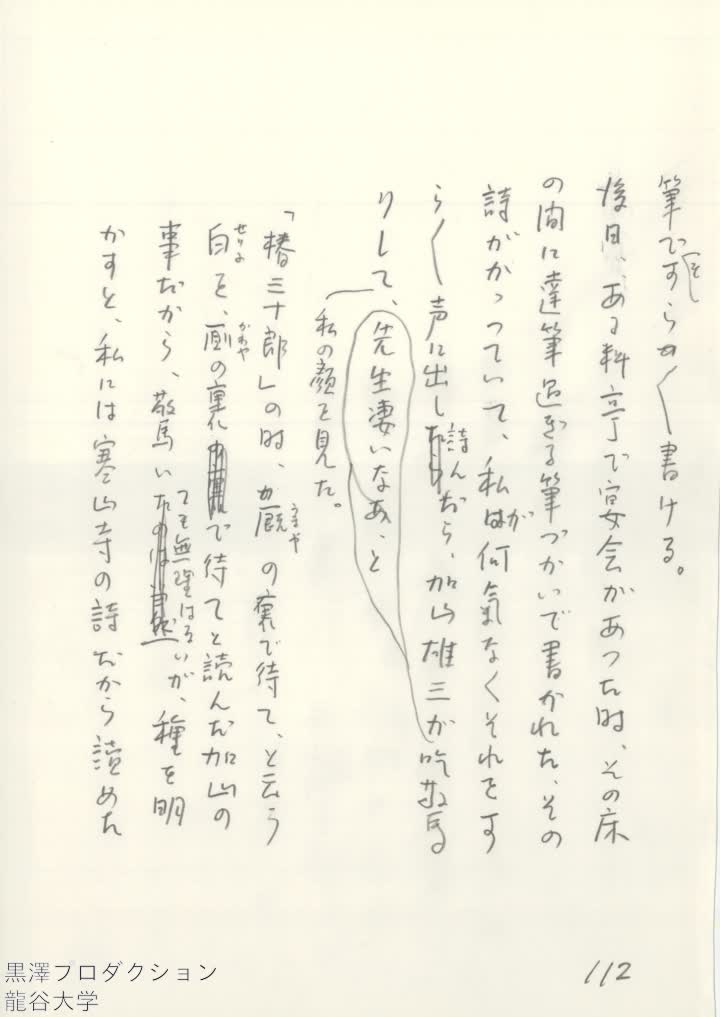 筆ですら〱書ける。
そ
後日、ある料亭で宴会があった時、その床
の間に達筆過ぎる筆づかいで書かれた、その
詩がかっていて、私が何気なくそれをす
ら〱声に出し
詩んだら、加山雄三が吃驚
りして、先生凄いなあ、と
私の顔を見た。
「椿三十郎」の時、厩の裏で待て、と云う
うまや
白を、厠の裏で待てと読んだ加山の
せりふ
かわや
事だから、驚いた
ても無理はないが、種を明
かすと、私には寒山寺の詩だから読めた
112
黒澤プロダクション
龍谷大学